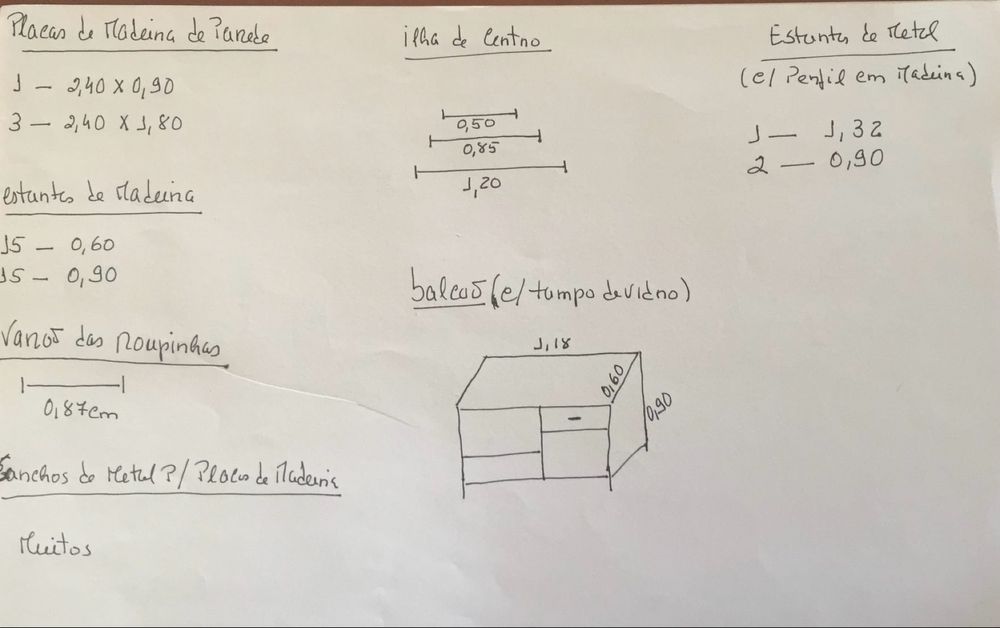 Placas de Madeira de Parede
1 — 2,40 x 0,90
3 — 2,40 x 1,80
estantes de Madeira
15 — 0,60
15 — 0,90
Varão das roupinhas
0,87cm
Ganchos de Metal P/ Placas de Madeira
Muitos
ilha de Centro
0,50
0,85
1,20
balcão (c/ tampo de vidro)
1,18
0,60
0,90
Estantes de Metal
(c/ Perfil em Madeira)
1 — 1,32
2 — 0,90